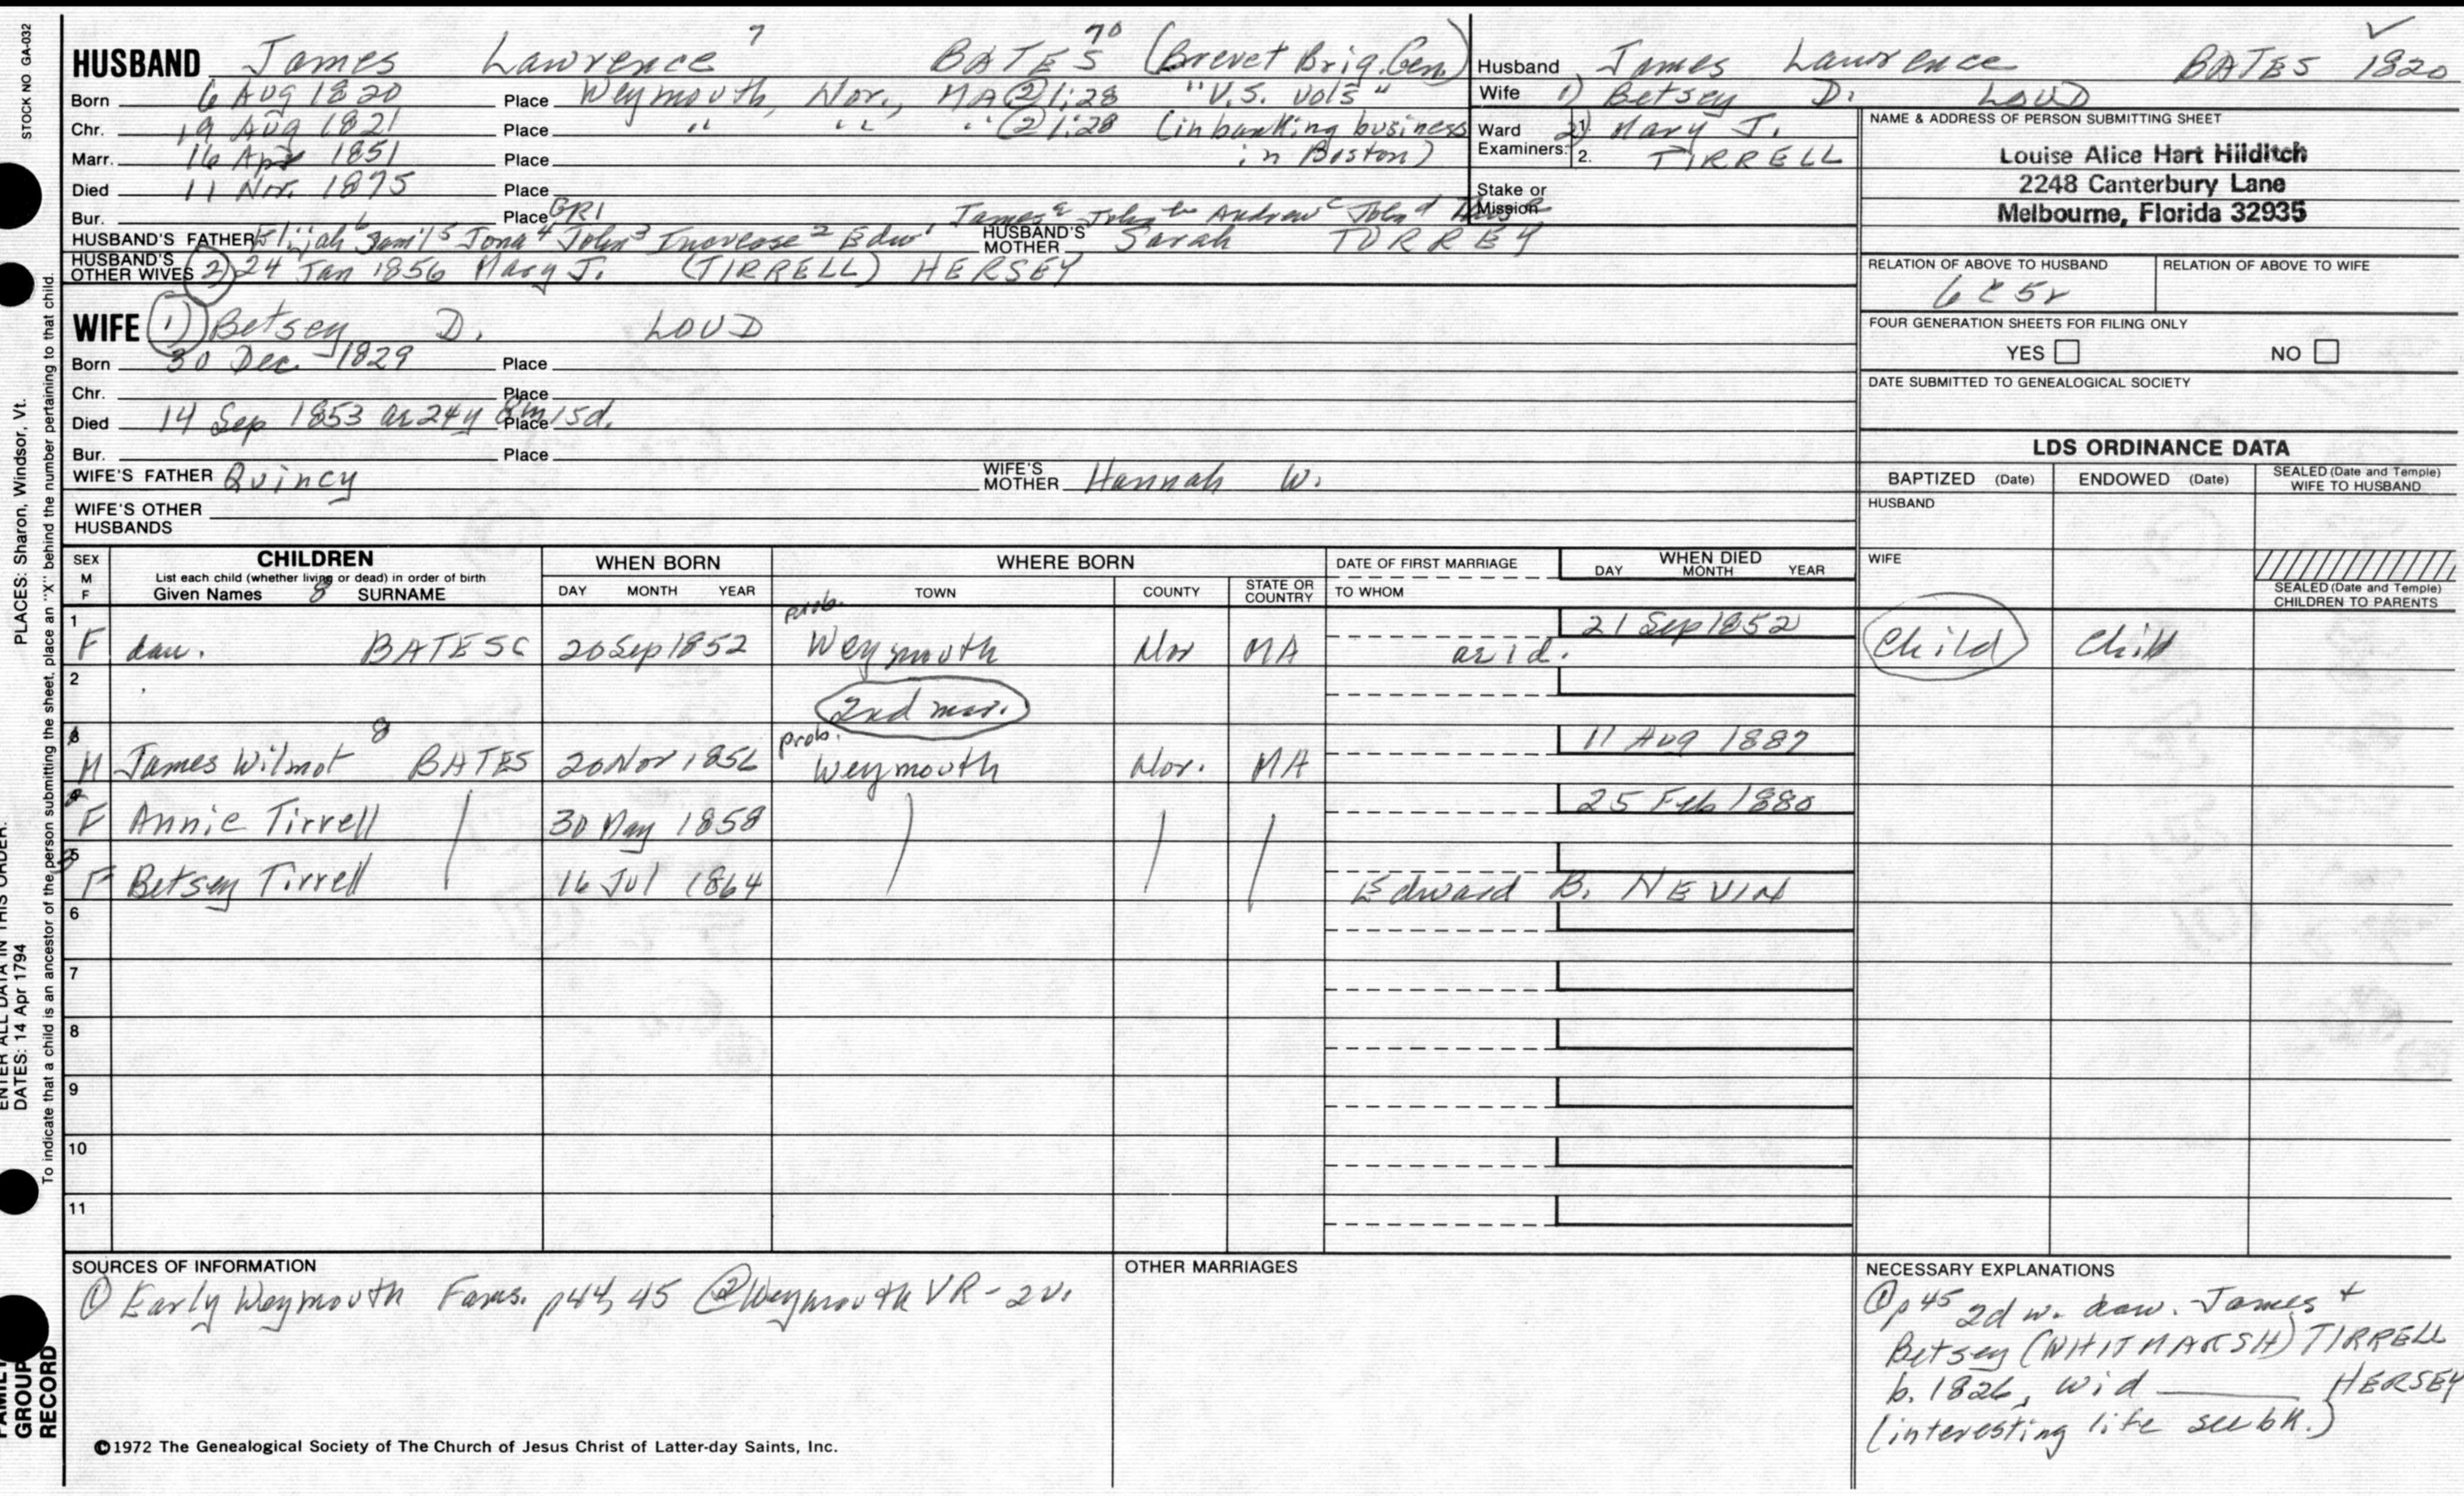 STOCK NO GA-032
HUSBAND James Lawrence 7 BATES 70 (Brevet Brig. Gen.)
Born 6 Aug 1820 Place Weymouth, Nor., MA ② 1:28 "V.S. vols"
Chr. 19 Aug 1821 Place " " " ② 1:28 (in banking business
Marr. 16 Apr 1851 Place in Boston)
Died 11 Nov. 1875 Place
Bur. Place GRI James a John b Andrew c John d
HUSBAND'S FATHER Elijah 6 Sam'l 5 Jona 4 John 3 Increase 2 Edw 1 HUSBAND'S MOTHER Sarah TORREY
HUSBAND'S OTHER WIVES 2) 24 Jan 1856 Mary J. (TIRRELL) HERSEY
WIFE 1) Betsey D. LOUD
Born 30 Dec. 1829 Place
Chr. Place
Died 14 Sep 1853 ae 24y 8m 15d. Place
Bur. Place
WIFE'S FATHER Quincy WIFE'S MOTHER Hannah W.
WIFE'S OTHER HUSBANDS
Husband James Lawrence BATES 1820
Wife 1) Betsey D. LOUD
Ward Examiners: 1. 2) Mary J.
2. TIRRELL
Stake or Mission
NAME & ADDRESS OF PERSON SUBMITTING SHEET
Louise Alice Hart Hilditch
2248 Canterbury Lane
Melbourne, Florida 32935
RELATION OF ABOVE TO HUSBAND RELATION OF ABOVE TO WIFE
6c5r
FOUR GENERATION SHEETS FOR FILING ONLY
YES NO
DATE SUBMITTED TO GENEALOGICAL SOCIETY
LDS ORDINANCE DATA
BAPTIZED (Date) ENDOWED (Date) SEALED (Date and Temple) WIFE TO HUSBAND
HUSBAND
WIFE
SEALED (Date and Temple) CHILDREN TO PARENTS
SEX M F CHILDREN WHEN BORN WHERE BORN DATE OF FIRST MARRIAGE WHEN DIED
List each child (whether living or dead) in order of birth DAY MONTH YEAR
Given Names 8 SURNAME DAY MONTH YEAR TOWN COUNTY STATE OR COUNTRY TO WHOM
1 F dau. BATES C 20 Sep 1852 prob. Weymouth Nor MA ae 1d. 21 Sep 1852 Child Child
2 2nd mar.
3 M James Wilmot 8 BATES 20 Nov 1856 prob. Weymouth Nor. MA 11 Aug 1887
4 F Annie Tirrell 30 May 1858 25 Feb 1880
5 3 F Betsey Tirrell 16 Jul 1864 Edward B. NEVIN
6
7
8
9
10
11
SOURCES OF INFORMATION
① Early Weymouth Fams. p44, 45 ② Weymouth VR - 2v.
OTHER MARRIAGES
NECESSARY EXPLANATIONS
① p45 2d w. daw. James +
Betsey (WHITMARSH) TIRRELL
b. 1826, wid ____ HERSEY
(interesting life see bk.)
©1972 The Genealogical Society of The Church of Jesus Christ of Latter-day Saints, Inc.
ENTER ALL DATA IN THIS ORDER:
DATES: 14 Apr 1794 PLACES: Sharon, Windsor, Vt.
To indicate that a child is an ancestor of the person submitting the sheet, place an "X" behind the number pertaining to that child.
FAMILY
GROUP
RECORD